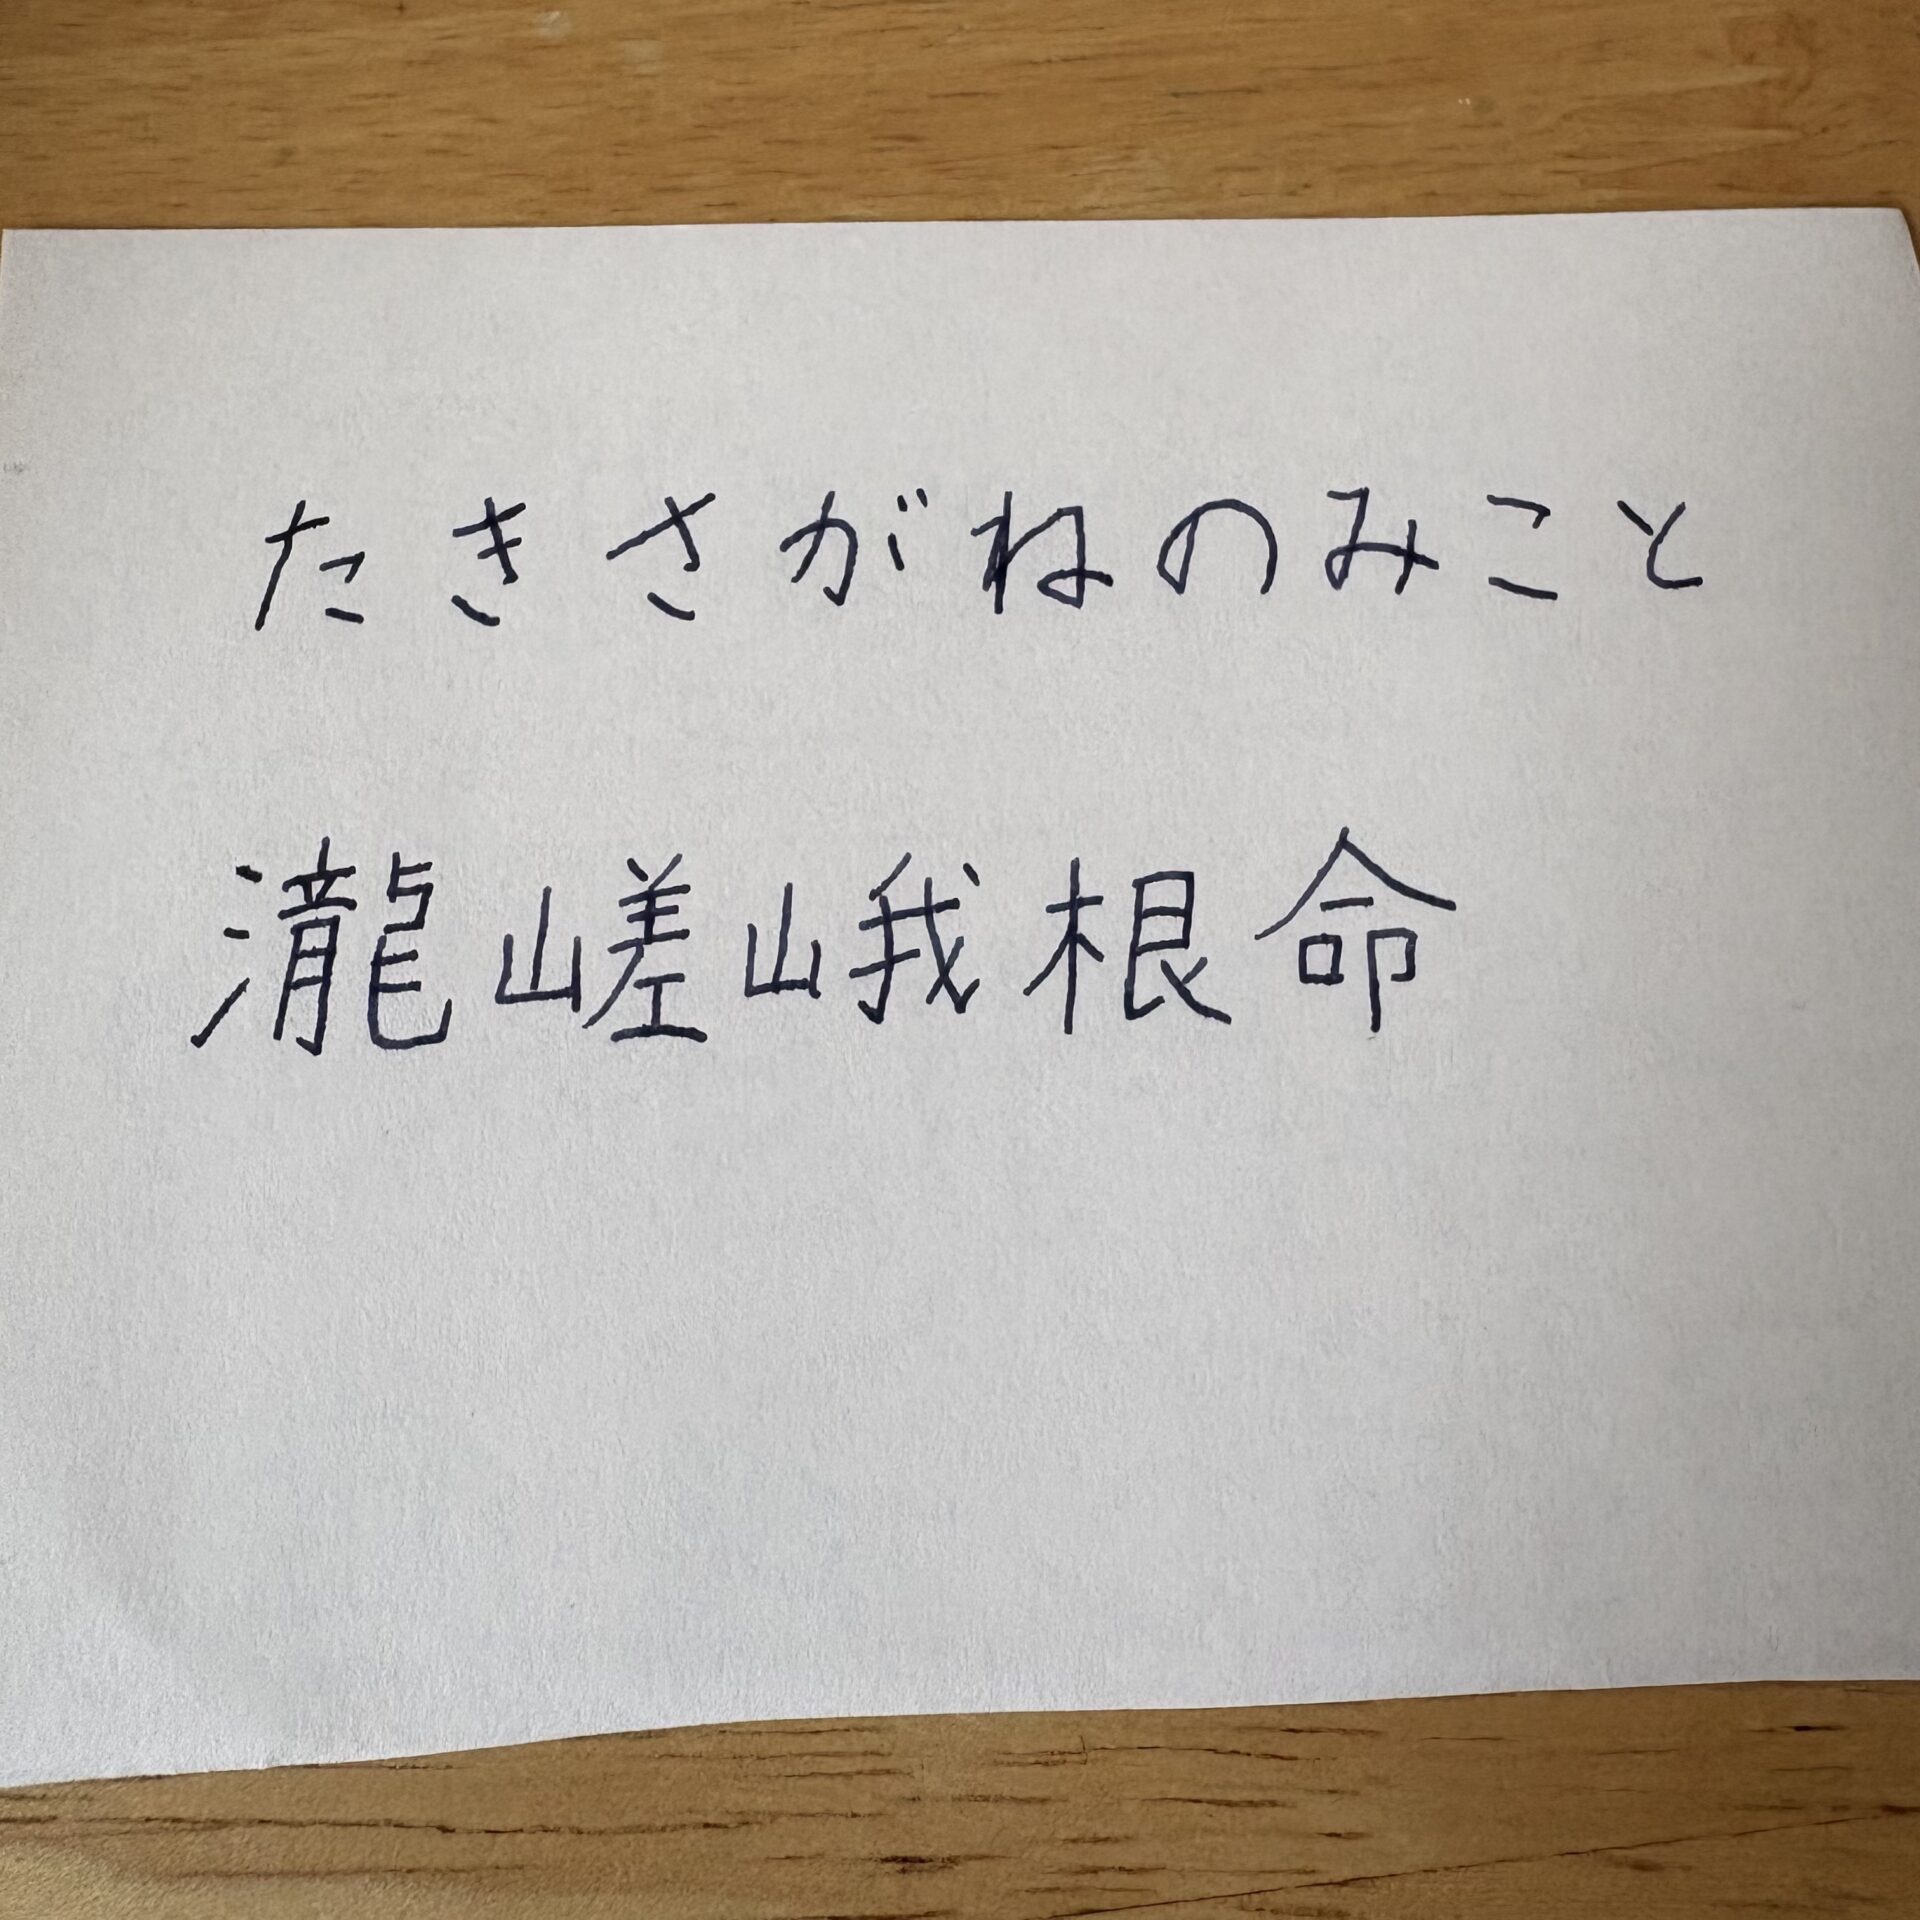 たきさがねのみこと
瀧嵯峨根命